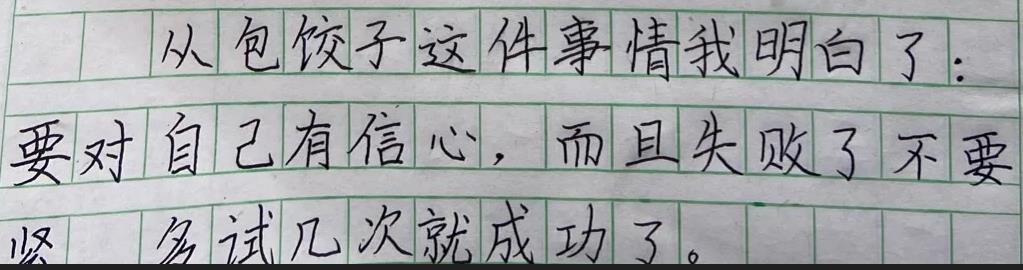 从包饺子这件事情我明白了：
要对自己有信心，而且失败了不要
紧 多试几次就成功了。